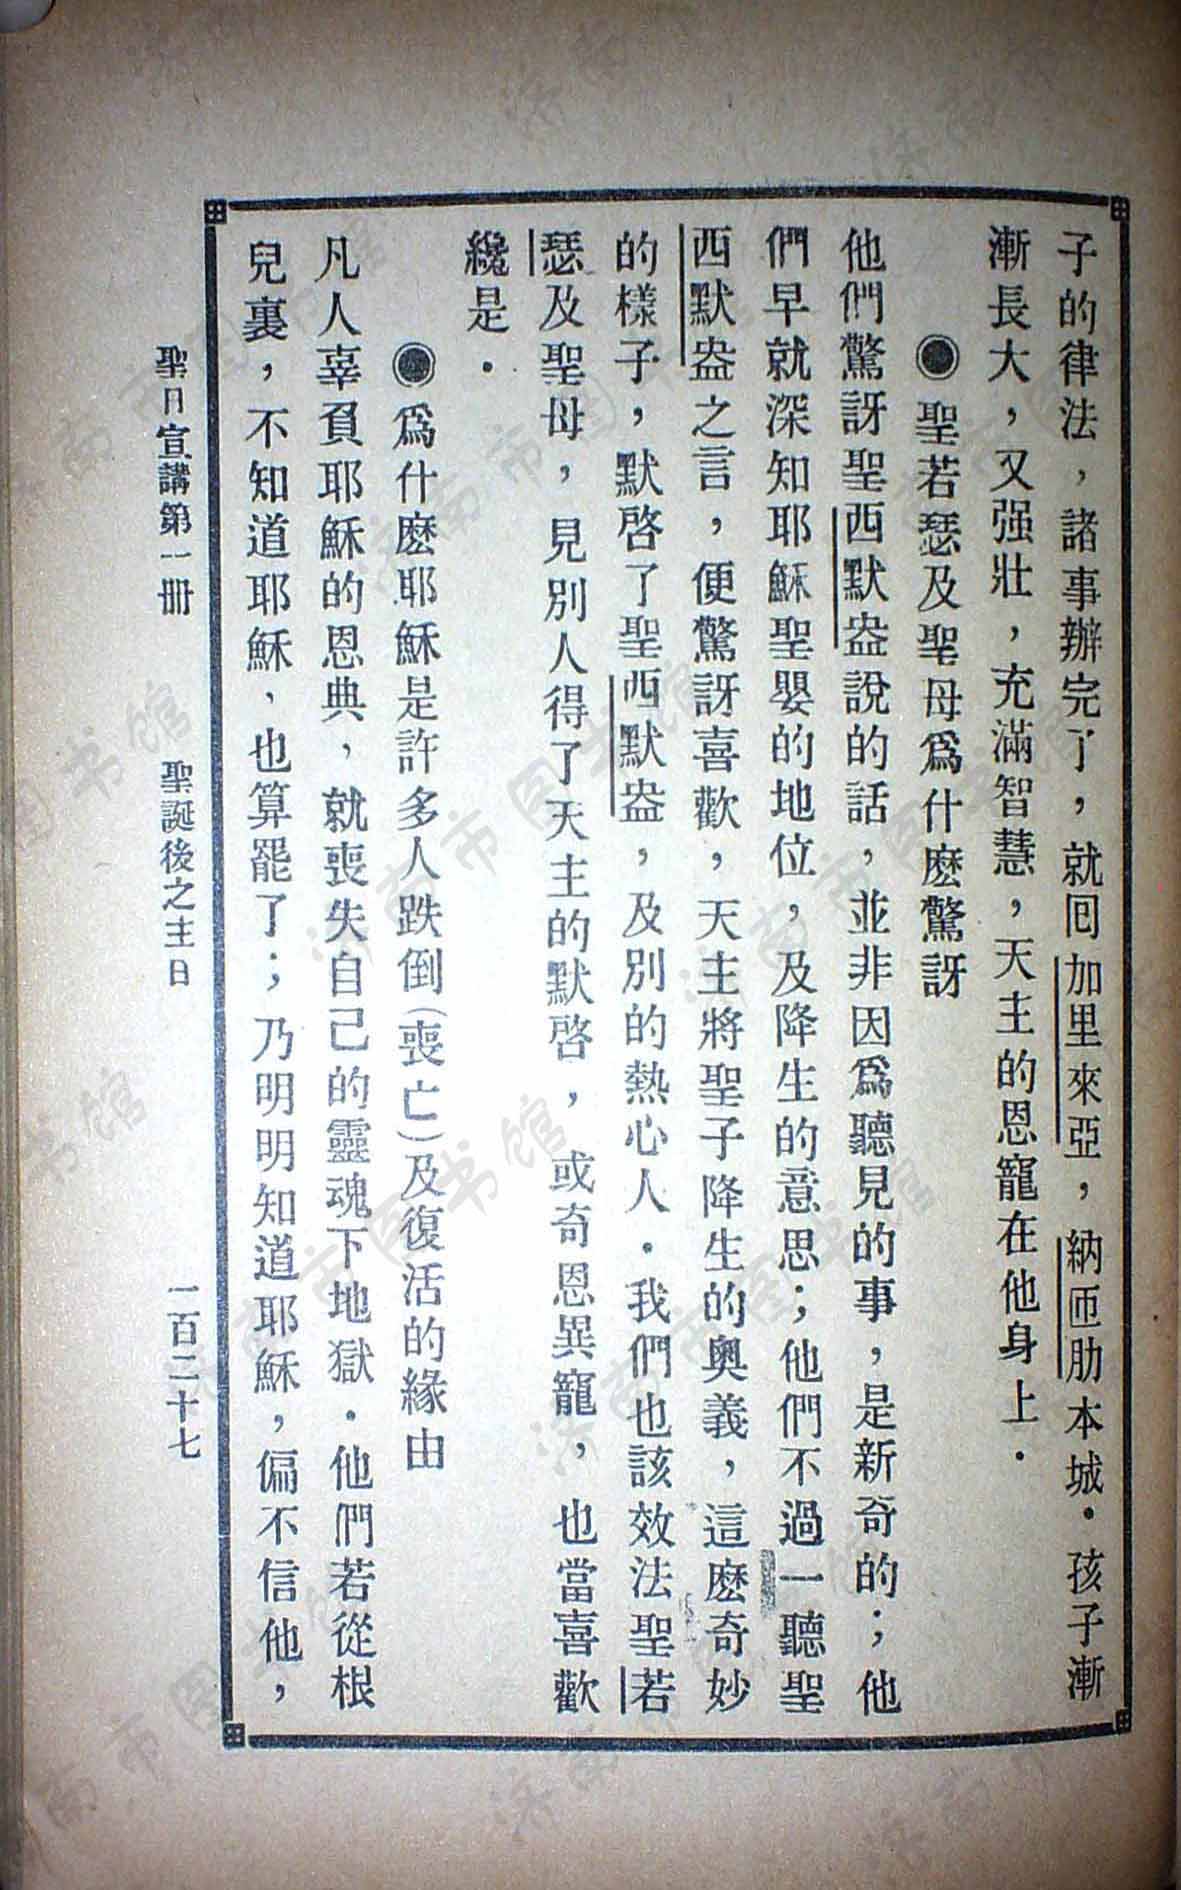 子的律法，諸事辦完了，就回加里來亞，納匝肋本城．孩子漸
漸長大，又强壯，充滿智慧，天主的恩寵在他身上．
◉聖若瑟及聖母爲什麽驚訝
他們驚訝聖西默盎說的話，並非因爲聽見的事，是新奇的；他
們早就深知耶穌聖嬰的地位，及降生的意思；他們不過一聽聖
西默盎之言，便驚訝喜歡，天主將聖子降生的奧義，這麽奇妙
的樣子，默啓了聖西默盎，及別的熱心人．我們也該效法聖若
瑟及聖母，見別人得了天主的默啓，或奇恩異寵，也當喜歡
纔是．
◉爲什麽耶穌是許多人跌倒(喪亡)及復活的緣由
凡人辜負耶穌的恩典，就喪失自己的靈魂下地獄．他們若從根
兒裏，不知道耶穌，也算罷了；乃明明知道耶穌，偏不信他，
聖日宣講第一册　聖誕後之主日　一百二十七
济南市图书馆